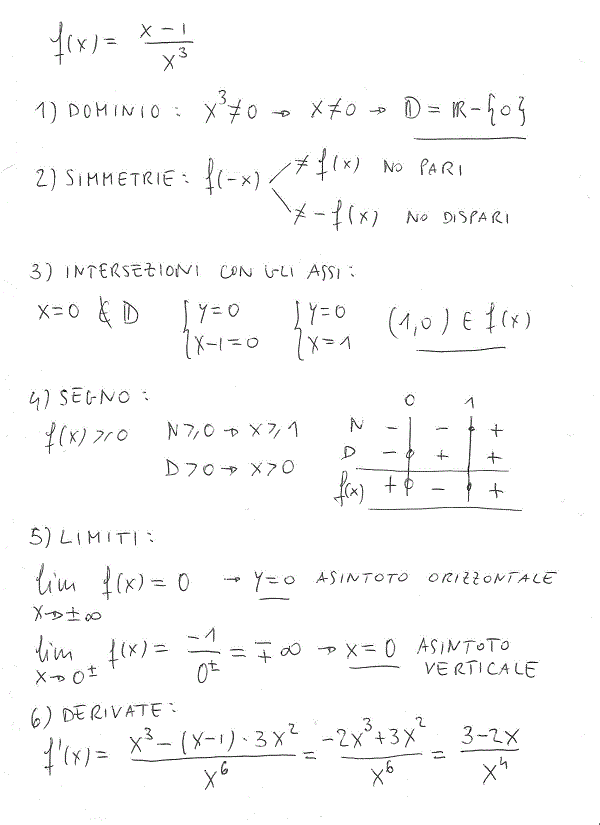 f(x) = (x-1)/x³
1) DOMINIO : x³≠0 → x≠0 → D = R-{0}
2) SIMMETRIE : f(-x) ≠ f(x) NO PARI
≠ -f(x) NO DISPARI
3) INTERSEZIONI CON GLI ASSI :
x=0 ∉ D { y=0 { y=0 (1,0) ∈ f(x)
{ x-1=0 { x=1
4) SEGNO : 0 1
f(x) ≥ 0 N≥0 → x≥1 N - - +
D>0 → x>0 D - + +
f(x) + - +
5) LIMITI :
lim f(x) = 0 → y=0 ASINTOTO ORIZZONTALE
x→±∞
lim f(x) = -1/0± = ∓∞ → x=0 ASINTOTO
x→0± VERTICALE
6) DERIVATE :
f'(x) = (x³-(x-1)·3x²)/x⁶ = (-2x³+3x²)/x⁶ = (3-2x)/x⁴